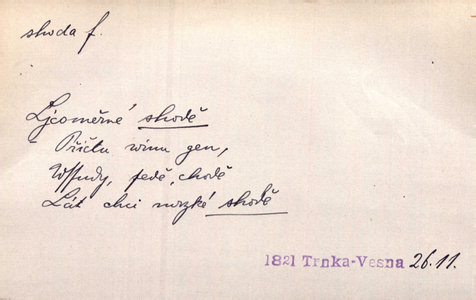 shoda f.
Ljcoměrné shodě
Přičtu winu gen,
Wssudy, sedě, chodě
Lát chci mrzké shodě
1821 Trnka-Vesna 26.11.